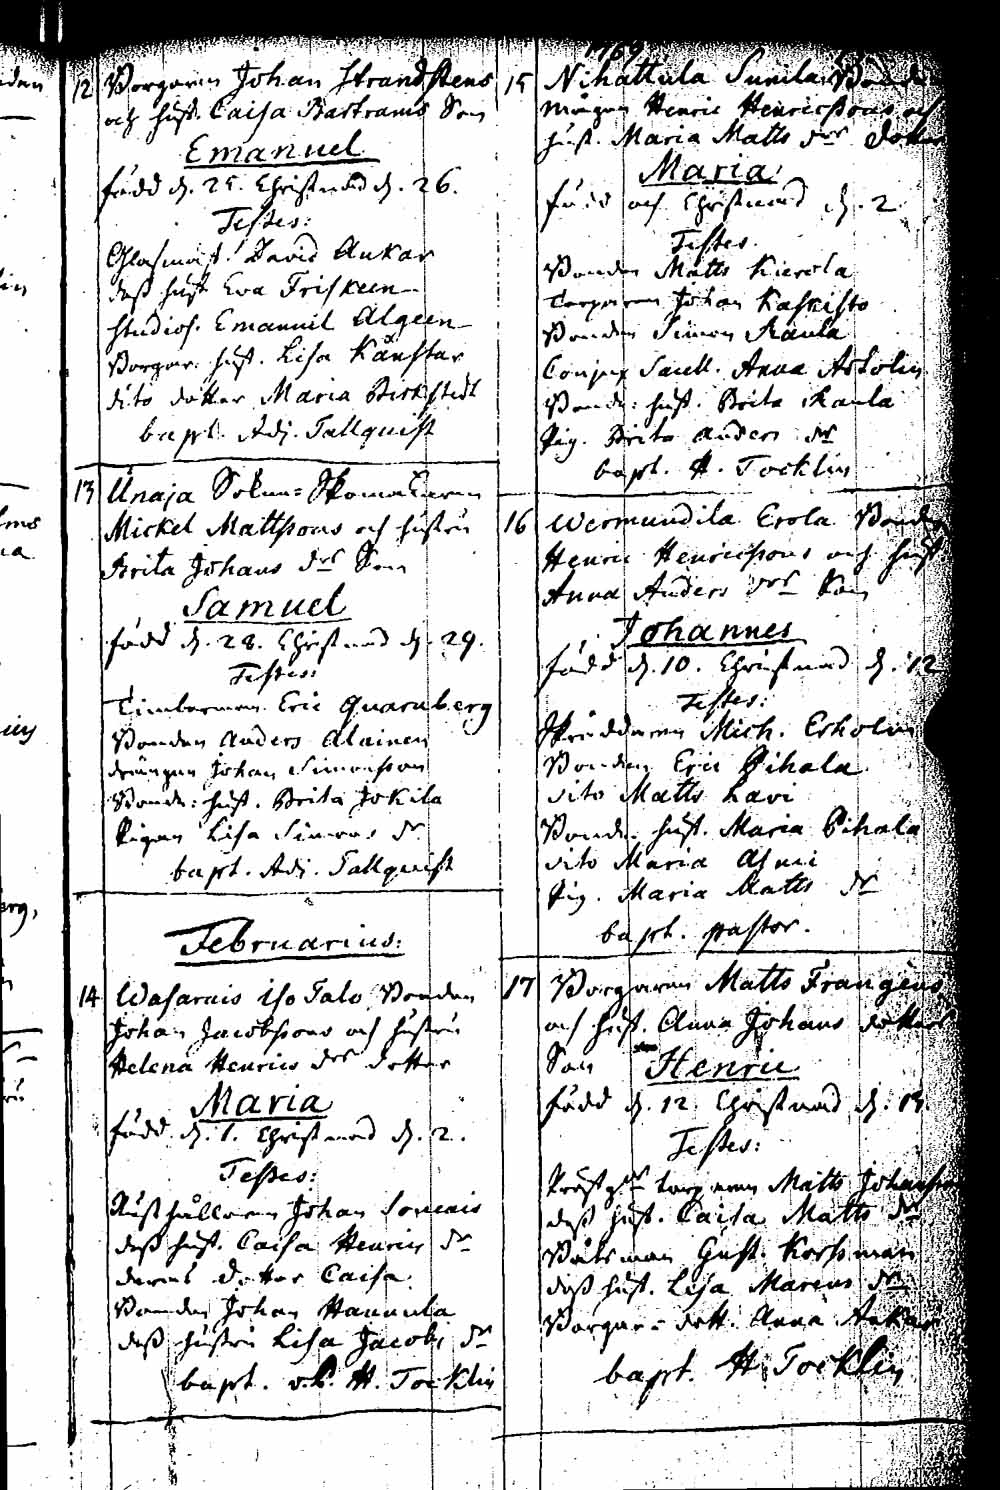 12 Borgaren Johan Strandstens
och hust. Caisa Bartrams Son
Emanuel
född d. 25. Christnad d. 26.
Testes:
Glasmäst. David Ankar
dess hust. Eva Friskeen
studios. Emanuel Algeen
Borgar. hust. Lisa Känstar
dito dotter Maria Birkstedt
bapt. Adj. Tallquist
13 Unaja Sokne-Skomakaren
Mickel Mattssons och hustru
Brita Johans dr Son
Samuel
född d. 28. Christnad d. 29.
Testes:
Timberman Eric Quarnberg
Bonden Anders Alainen
drängen Johan Simonsson
Bonde: hust. Brita Jokila
Pigan Lisa Simons dr
bapt. Adj. Tallquist
Februarius:
14 Wasarais iso Talo Bonden
Johan Jacobssons och hustru
Helena Henrics dr dotter
Maria
född d. 1. Christnad d. 2.
Testes:
Rusthållaren Johan Sorcais
dess hust. Caisa Henrics dr
deras dotter Caisa
Bonden Johan Hannula
dess hustru Lisa Jacobs dr
bapt. v.P. H. Tocklin
1769
15 Nihattula Sunila Bonde
mågen Henric Henricssons och
hust. Maria Matts dr dotter
Maria
född och Christnad d. 2
Testes.
Bonden Matts Kierola
Torparen Johan Kaskisto
Bonden Simon Raula
Conjux Sacell. Anna Arholin
Bonde: hust. Brita Raula
Pig. Brita Anders dr
bapt. H. Tocklin
16 Wermundila Erola Bonden
Henric Henricssons och hust
Anna Anders dr Son
Johannes
född d. 10. Christnad d. 12
Testes:
Skräddaren Mich. Erholin
Bonden Eric Pihala
dito Matts Lavi
Bonde. hust. Maria Pihala
dito Maria
Pig. Maria Matts dr
bapt. pastor.
17 Borgaren Matts Frangéns
och hust. Anna Johans dotters
Son Henric
född d. 12 Christnad d. 13.
Testes:
torparen Matts Johansson
dess hust. Caisa Matts dr
Båtsman Gust. Korsman
dess hust. Lisa Marcus dr
Borgare dott. Anna Ankar
bapt. H. Tocklin